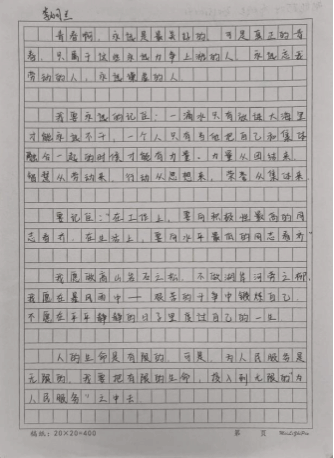 青春啊，永远是最美好的，可是真正的青
春，只属于这些永远力争上游的人，永远忘我
劳动的人，永远谦虚的人。
我要永远的记住：一滴水只有放进大海里
才能永远不干，一个人只有当他把自己和集体
融合一起的时候才能有力量。力量从团结来，
智慧从劳动来，行动从思想来，荣誉从集体来。
要记住："在工作上，要向积极性最高的同
志看齐，在生活上，要向水平最低的同志看齐"
我愿做高山岩石之松，不做湖岸河旁之柳。
我愿在暴风雨中——艰苦的斗争中锻炼自己，
不愿在平平静静的日子里度过自己的一生
人的生命是有限的，可是，为人民服务是
无限的，我要把有限的生命，投入到无限的"为
人民服务"之中去
稿纸：20×20=400
第 页